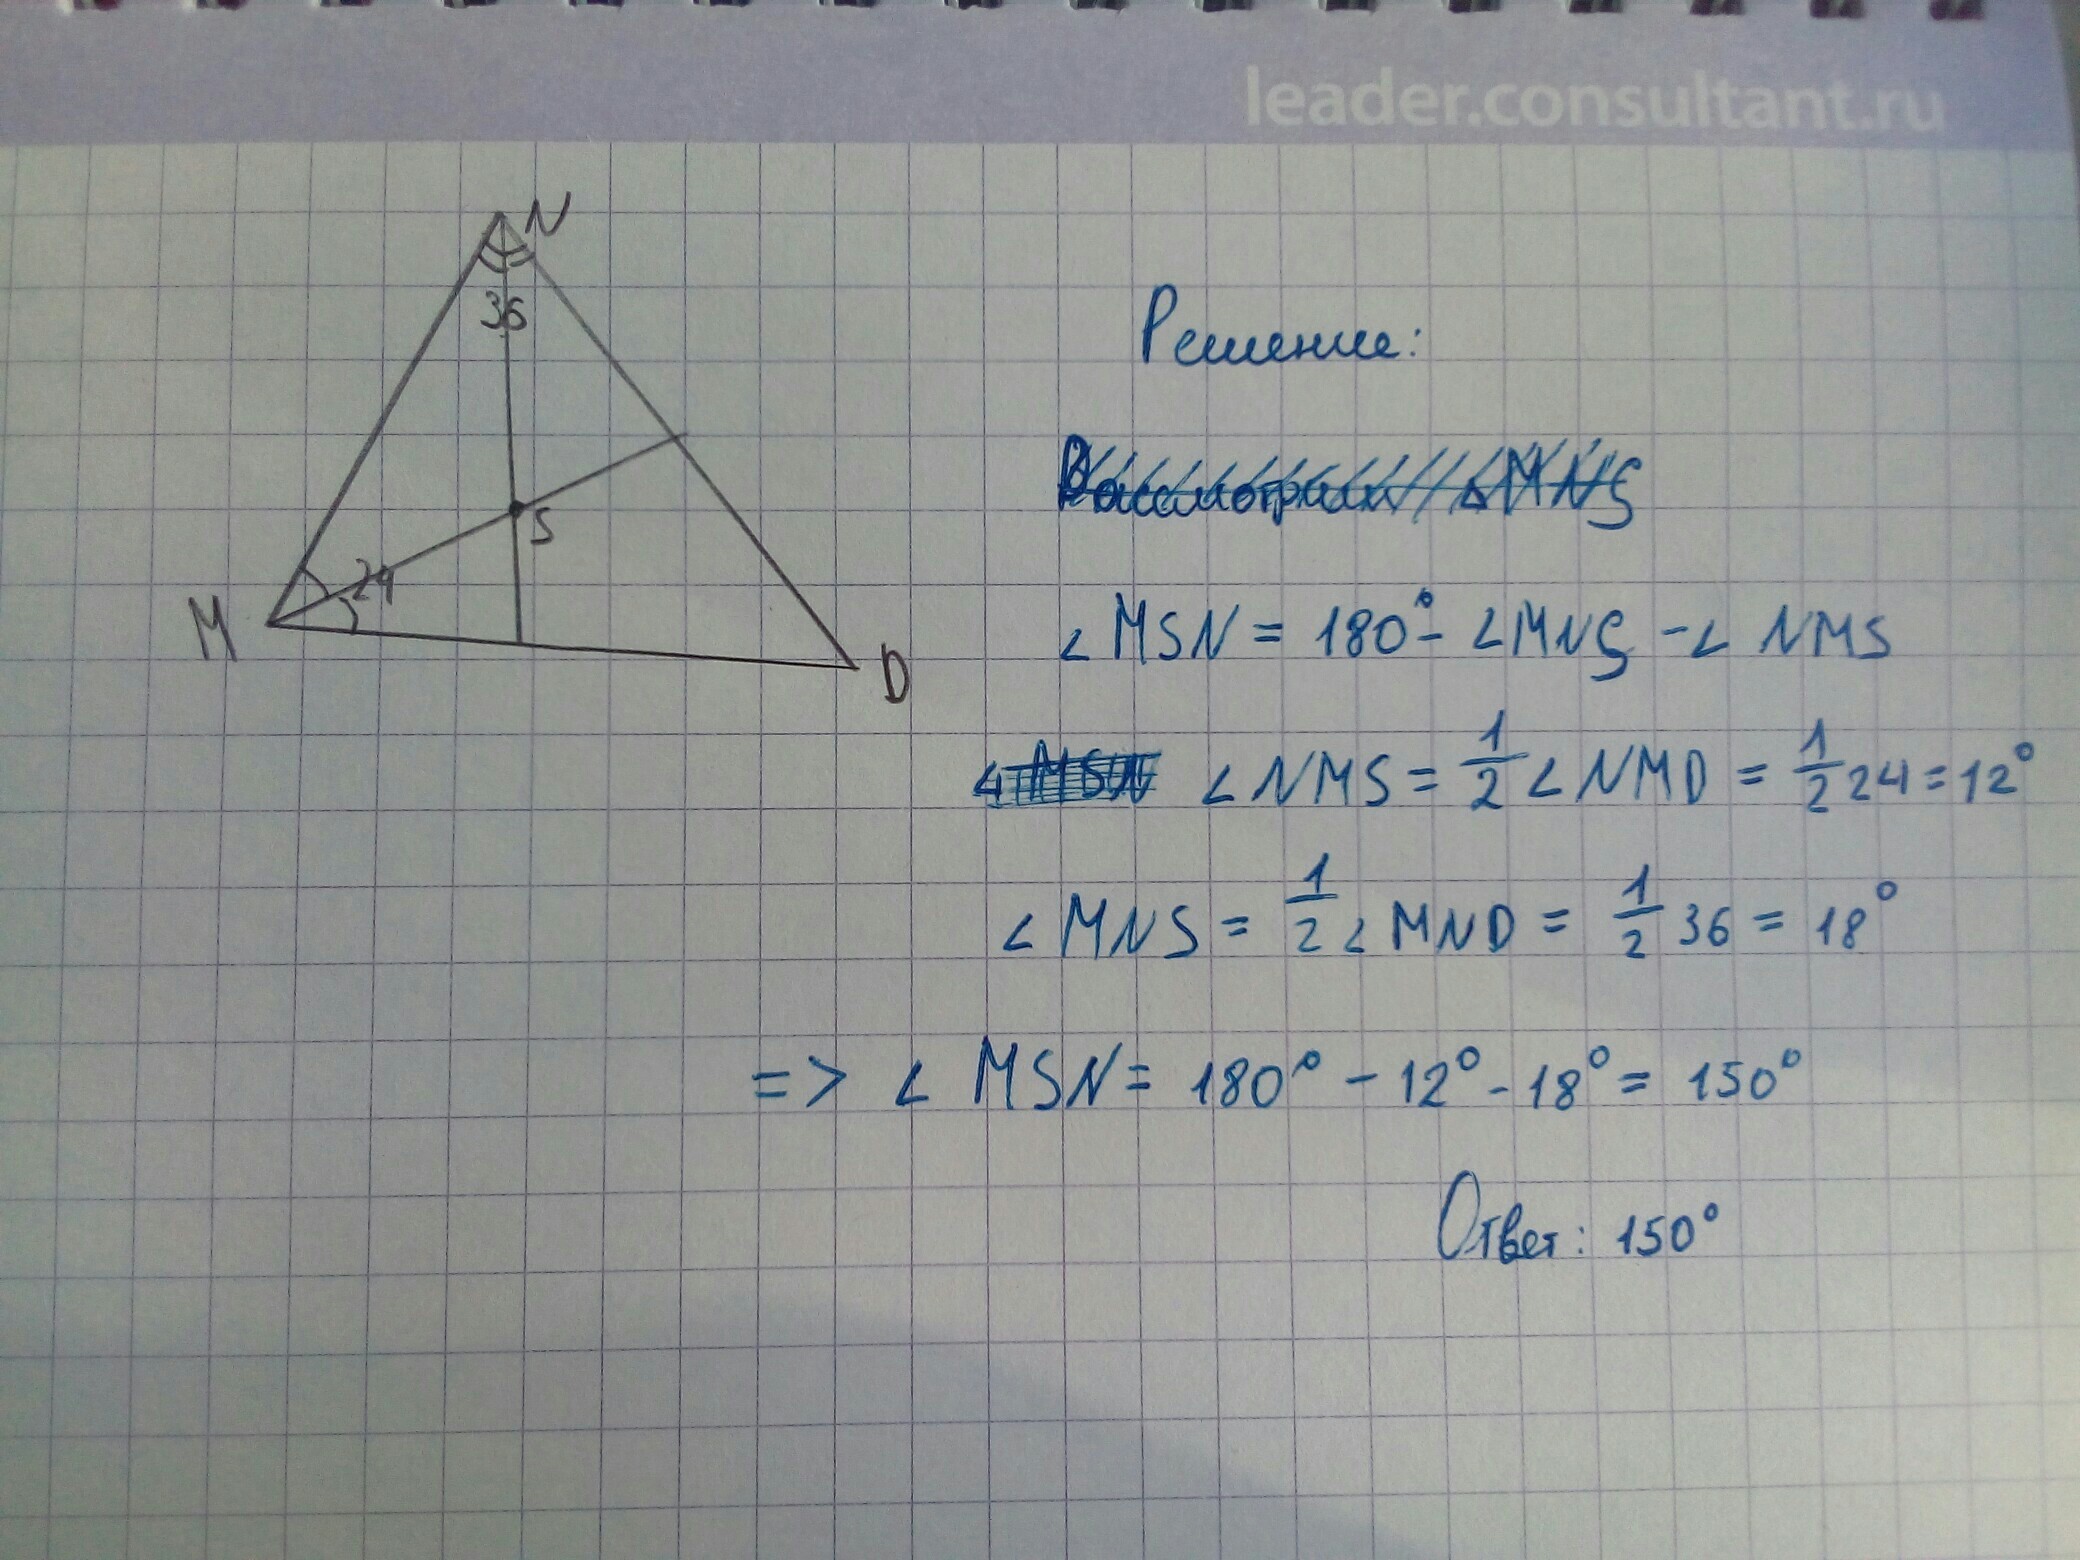 leader.consultant.ru
N
36
S
24
M
D
Решение:
Рассмотрим △MNS
∠MSN = 180° - ∠MNS - ∠NMS
∠NMS = 1/2 ∠NMD = 1/2 24 = 12°
∠MNS = 1/2 ∠MND = 1/2 36 = 18°
=> ∠MSN = 180° - 12° - 18° = 150°
Ответ: 150°